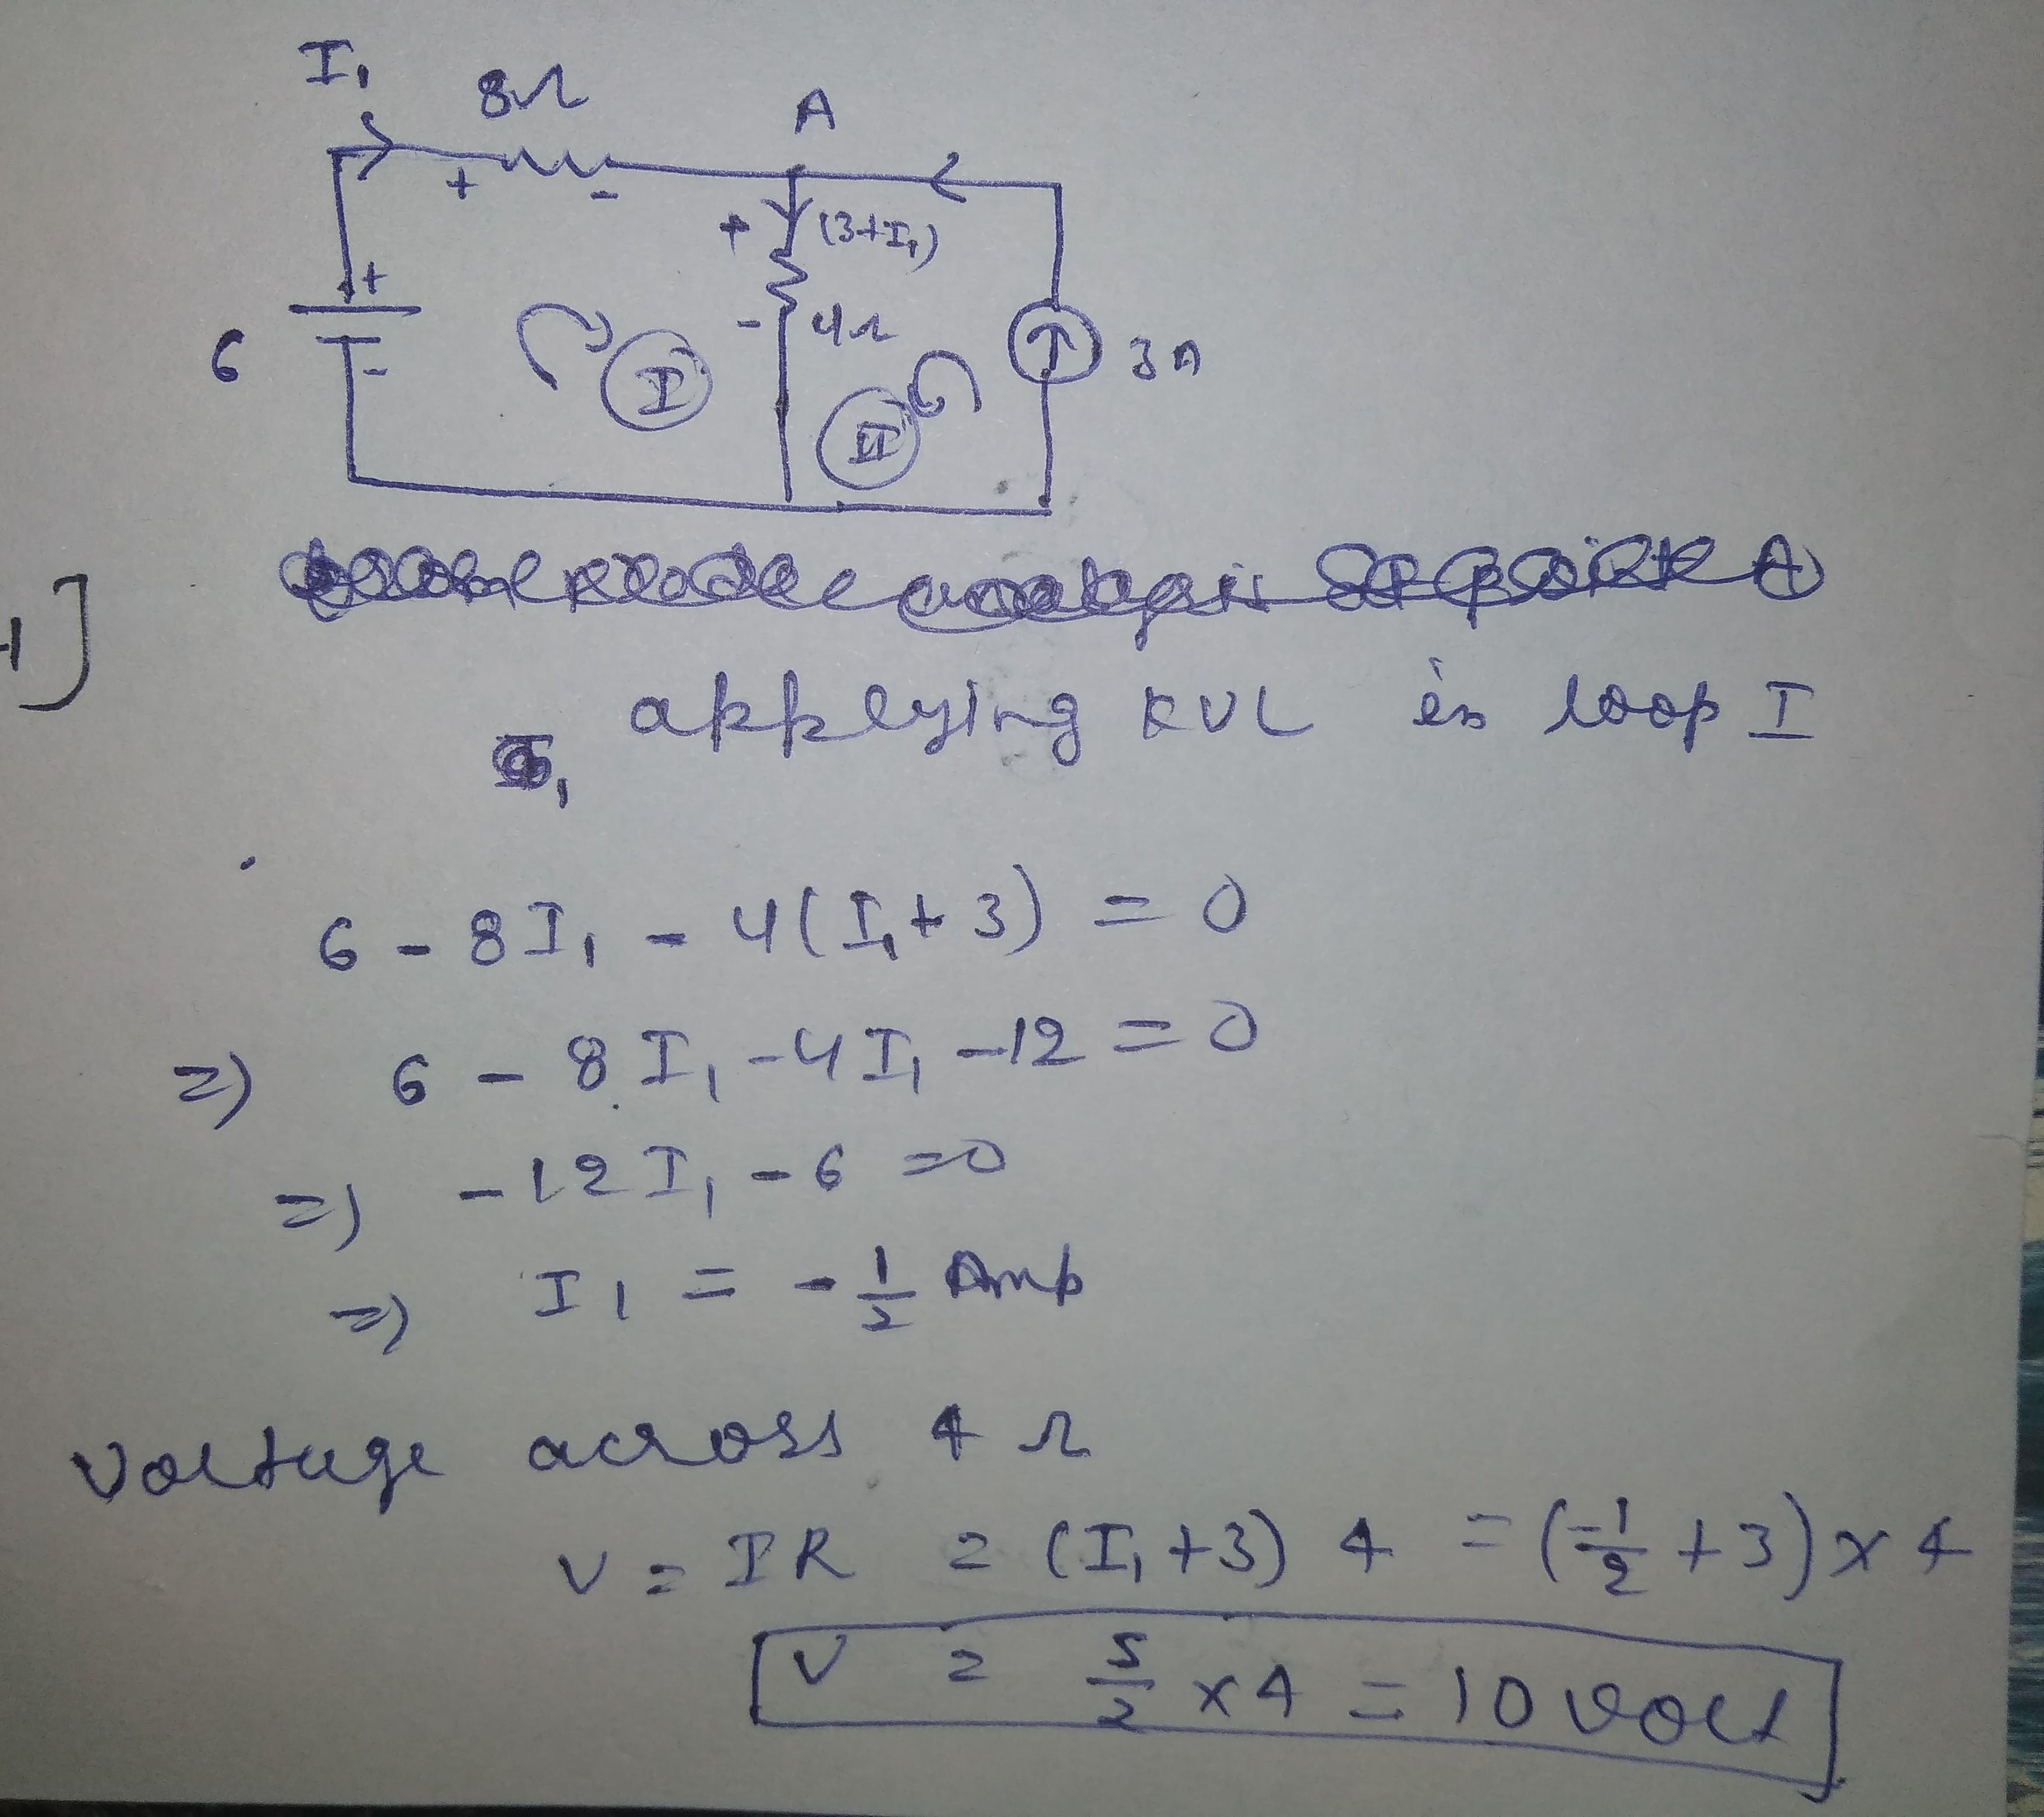 I₁
8Ω A
+ -
+ (3+I₁)
+
- 4Ω
6 I 3A
-
II
1]
applying KVL in loop I
6 - 8I₁ - 4(I₁+3) = 0
=) 6 - 8I₁ -4I₁ -12 = 0
=) -12I₁ -6 =0
=) I₁ = -1/2 Amp
Voltage across 4Ω
V = IR = (I₁+3) 4 = (-1/2 +3)×4
V = 5/2 ×4 = 10 volt